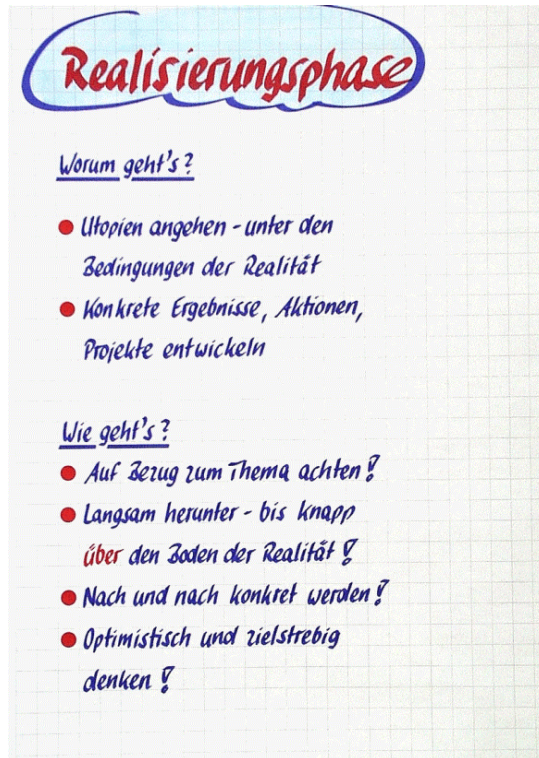 Realisierungsphase
Worum geht's?
Utopien angehen - unter den
Bedingungen der Realität
Konkrete Ergebnisse, Aktionen,
Projekte entwickeln
Wie geht's?
Auf Bezug zum Thema achten!
Langsam herunter - bis knapp
über den Boden der Realität!
Nach und nach konkret werden!
Optimistisch und zielstrebig
denken!